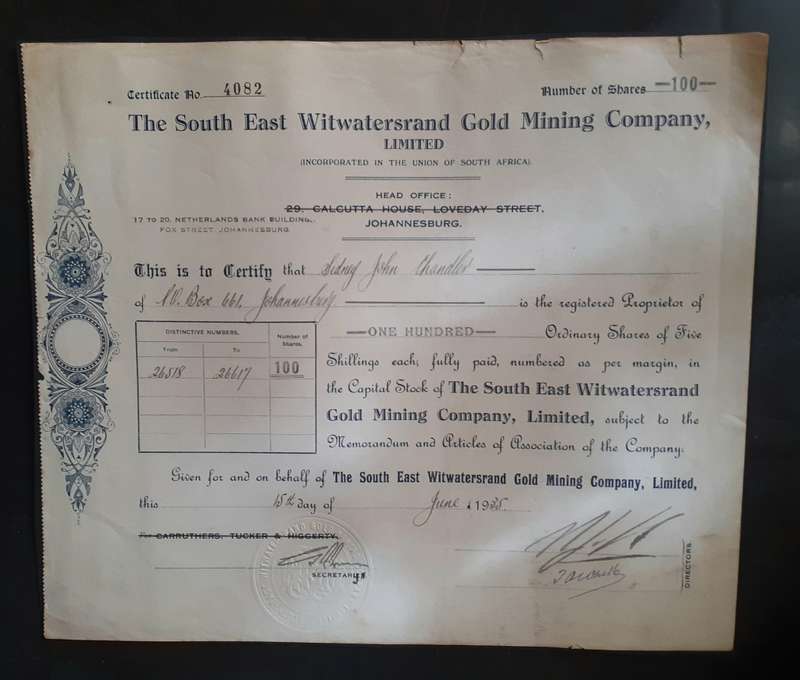 Certificate No. 4082
Number of Shares —100—
The South East Witwatersrand Gold Mining Company,
LIMITED
(INCORPORATED IN THE UNION OF SOUTH AFRICA).
HEAD OFFICE:
29, CALCUTTA HOUSE, LOVEDAY STREET,
17 TO 20, NETHERLANDS BANK BUILDING,
FOX STREET, JOHANNESBURG
JOHANNESBURG.
This is to Certify that Sidney John Chandler
of P.O. Box 661. Johannesburg is the registered Proprietor of
—ONE HUNDRED— Ordinary Shares of Five
Shillings each, fully paid, numbered as per margin, in
the Capital Stock of The South East Witwatersrand
Gold Mining Company, Limited, subject to the
Memorandum and Articles of Association of the Company.
DISTINCTIVE NUMBERS.
Number of
Shares.
From To
26518 26617 100
Given for and on behalf of The South East Witwatersrand Gold Mining Company, Limited,
this 15th day of June 1935.
For CARRUTHERS, TUCKER & HIGGERTY,
SECRETARY
DIRECTORS.